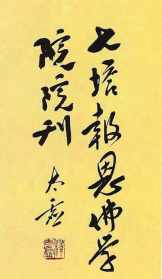 七塔報恩佛学
院院刊
太虚